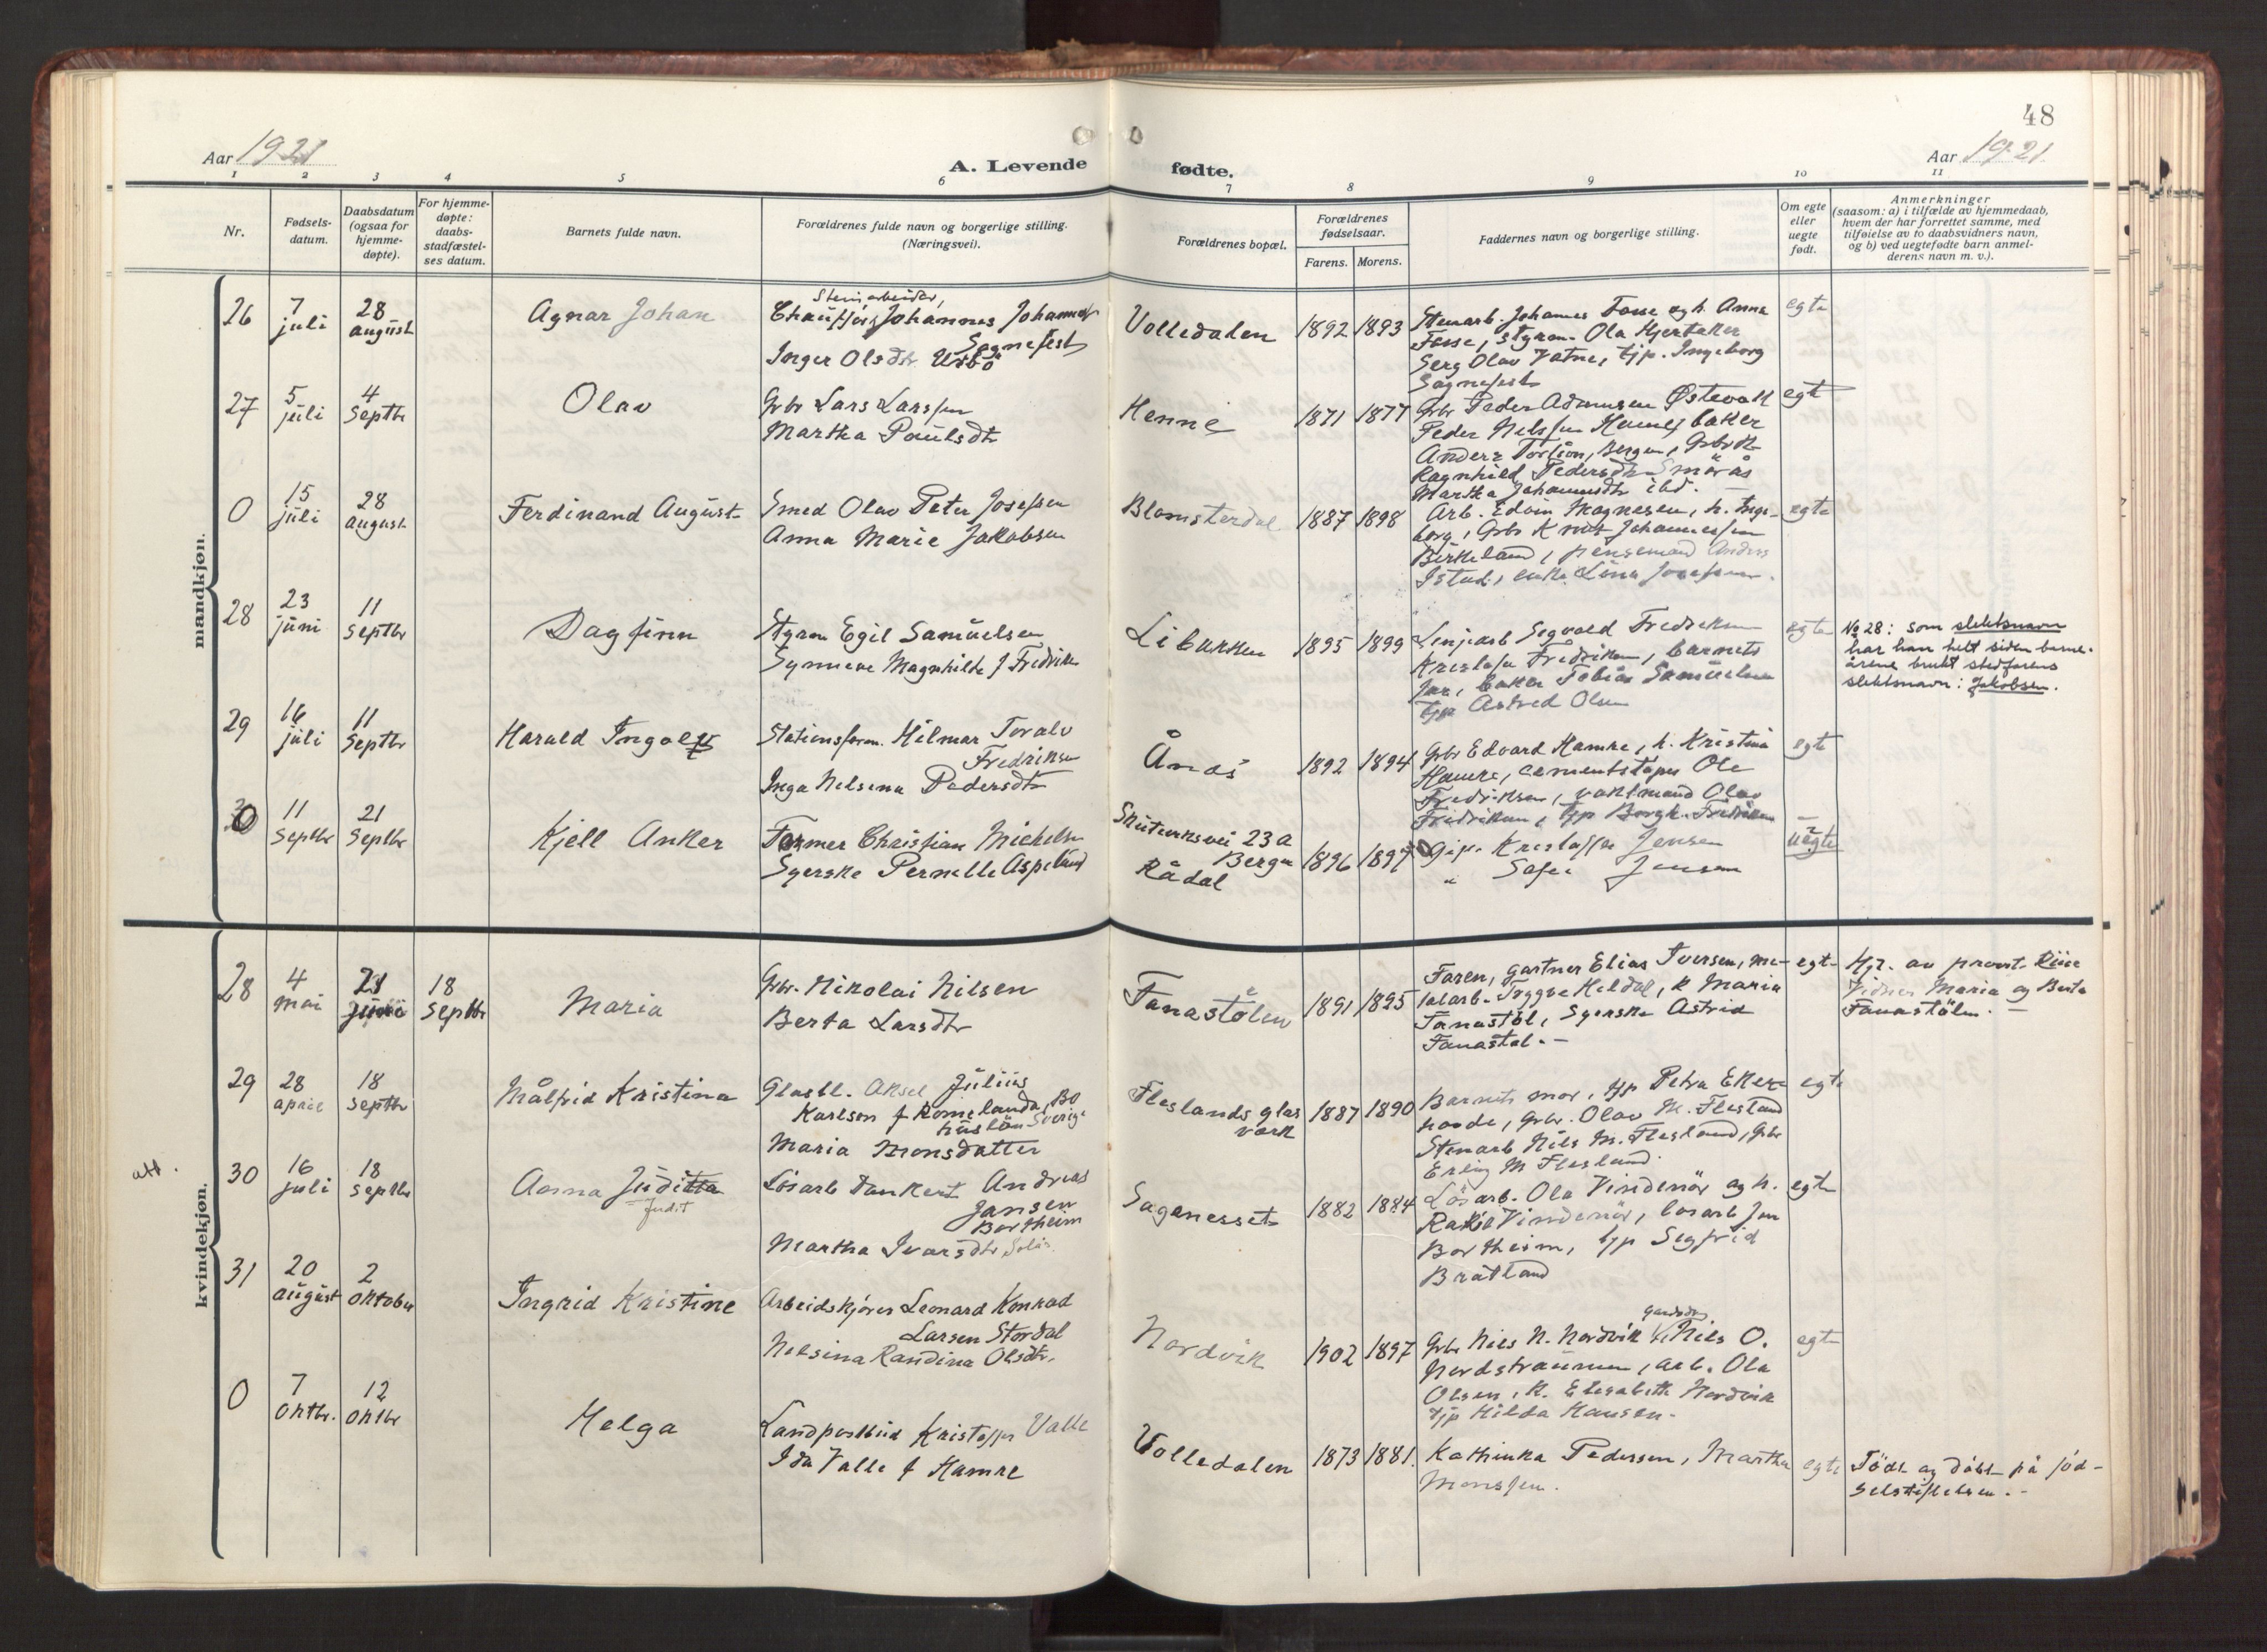 48
Aar 1921
A. Levende
fødte.
Aar 1921
1 2 3 4 5 6 7 8 9 10 11
Nr.
Fødsels-
datum.
Daabsdatum
(ogsaa for
hjemme-
døpte).
For hjemme-
døpte:
daabs-
stadfæstel-
ses datum.
Barnets fulde navn.
Forældrenes fulde navn og borgerlige stilling.
(Næringsvei).
Forældrenes bopæl.
Forældrenes
fødselsaar.
Farens. Morens.
Faddernes navn og borgerlige stilling.
Om egte
eller
uegte
født.
Anmerkninger
(saasom: a) i tilfælde av hjemmedaab,
hvem der har forrettet samme, med
tilføielse av to daabsvidners navn,
og b) ved uegtefødte barn anmel-
derens navn m. v.).
mandkjøn.
26
7
juli
28
august
Agnar Johan
Steinarbeider,
Chauffør Johannes Johannes
Sognefest
Inger Olsdtr Urbö
Volledalen
1892 1893
Stenarb. Johannes Fosse og h. Anna
Fosse, styrm. Ola Hjertaker
Serg Olav Vatne, tjp. Ingeborg
Sognefest
egte
27
5
juli
4
Septbr
Olav
Gbr Lars Larssen
Martha Paulsdtr
Henne
1871 1877
Gbr Peder Adamsen Østevoll
Peder Nelssen Hamre, baker
Anders Bergen,
Ragnhild Pedersdtr Smörås
Martha Johannesdtr ibd. -
egte
0
15
juli
28
august
Ferdinand August
Smed Olav Peter Josefsen
Anna Marie Jakobsen
Blomsterdal
1887 1898
Arb. Edvin Magnesen, h. Inge-
borg, Gbr Knut Johannessen
Birkeland, pensemand Anders
Istad, enke Lina Josefsen.
egte
28
23
juni
11
Septbr
Dagfinn
Styrm Egil Samuelsen
Synneve Magnhilde f Fredriksen
Libakken
1895 1899
Linjearb Sigvald Fredriksen
Kristofer Fredriksen, barnets
far, baker Tobias Samuelsen
tjp Astrid Olsen
egte
No 28: som slektsnavn
har han helt siden barne-
årene brukt stedfarens
slektsnavn: Jakobsen.
29
16
juli
11
Septbr
Harald Ingolf
Stationsform. Hilmar Toralv
Fredriksen
Inga Nelsina Pedersdtr
Ånås
1892 1894
Gbr Edvard Hamre, h. Kristina
Hamre, cementstøper Ole
Fredriksen, vaktmand Olav
Fredriksen, tjp Borgh. Fredriksen
egte
30
11
Septbr
21
Septbr
Kjell Anker
Former Christian Michelsen
Syerske Pernelle Aspelund
Skuteviksvei 23a
Bergen
Rådal
1896 1897
Gjp. Kristoffer Jensen
" Sofie Jensen
uegte
kvindekjøn.
28
4
mai
18
Septbr
Maria
Gbr. Nikolai Nilsen
Berta Larsdtr
Fanastølen
1891 1895
Faren, gartner Elias Iversen, me-
talarb. Tryggve Hildal, k Maria
Fanastöl, Syerske Astrid
Fanastöl. -
egte
Hjd. av provst Riise
Vidner Maria og Berta
Fanastölen. -
29
28
april
18
Septbr
Målfrid Kristina
Glasbl. Aksel Julius
Karlsen f Romelanda, Bo
huslän Sverige
Maria Monsdatter
Fleslands glas
værk
1887 1890
Barnets mor, tjp Petra Eker-
hovde, Gbr. Olav M. Flesland
Stenarb Nils M. Flesland, Gbr
Erling M Flesland.
egte
att.
30
16
juli
18
Septbr
Aasna Juditta
Judit
Løsarb Dankert Andreas
Jansen
Bortheim
Martha Ivarsdtr
Saganesset
1882 1884
Løsarb. Ola Vindenör og h.
Rakel Vindenör, løsarb Jan
Bortheim, tjp Sigfrid
Bratland
egte
31
20
august
2
Oktober
Ingrid Kristine
Arbeidskjører Leonard Konrad
Larsen Stordal
Nelsina Randina Olsdtr.
Nordvik
1902 1897
Gbr Nils N. Nordvik Nils O.
Nordstraumen, arb. Ola
Olsen, k. Elisabeth Nordvik
tjp Hilda Hansen.
egte
0
7
Oktbr.
12
Oktbr
Helga
Landpostbud Kristoffer Valle
Ida Valle f Hamre
Volledalen
1873 1881.
Kathinka Pedersen, Martha
Monssen.
egte
Född og döbt på föd-
selstiftelsen. -